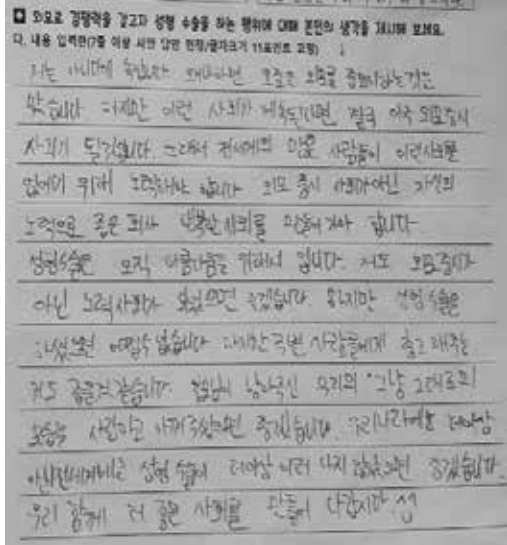 외모로 경쟁력을 갖고자 성형 수술을 하는 행위에 대해 본인의 생각을 제시해 보세요.
다. 내용 입력란(7줄 이상 서면 답변 한정/글자크기 11포인트 고정)
저는 왜냐하면 요즘은 외모를 것은
맞습니다 하지만 이런 사회가 계속된다면, 결국 외모중시
사회가 될것입니다. 그래서 전세계의 많은 사람들이 이런사회를
없애기 위해 노력해야 합니다 외모 중시 사회가아닌 자식의
노력으로 좋은 회사 행복한 사회를 만들어 가야 합니다
성형수술은 오직 아름다움을 위해서 입니다. 저도 외모중시가
아닌 노력사회가 되었으면 좋겠습니다. 하지만 성형수술은
어쩔수 없습니다 하지만 주변 사람들에게 해주는
것도 좋을것 같습니다. 낳아주신 우리의 "그냥 그대로의
모습을 사랑하고 아껴주었으면 좋겠습니다. 우리나라에는 더이상
성형 수술이 더이상 일어 나지 않았으면 좋겠습니다.
우리 함께 더 좋은 사회를 만들어 나갑시다.